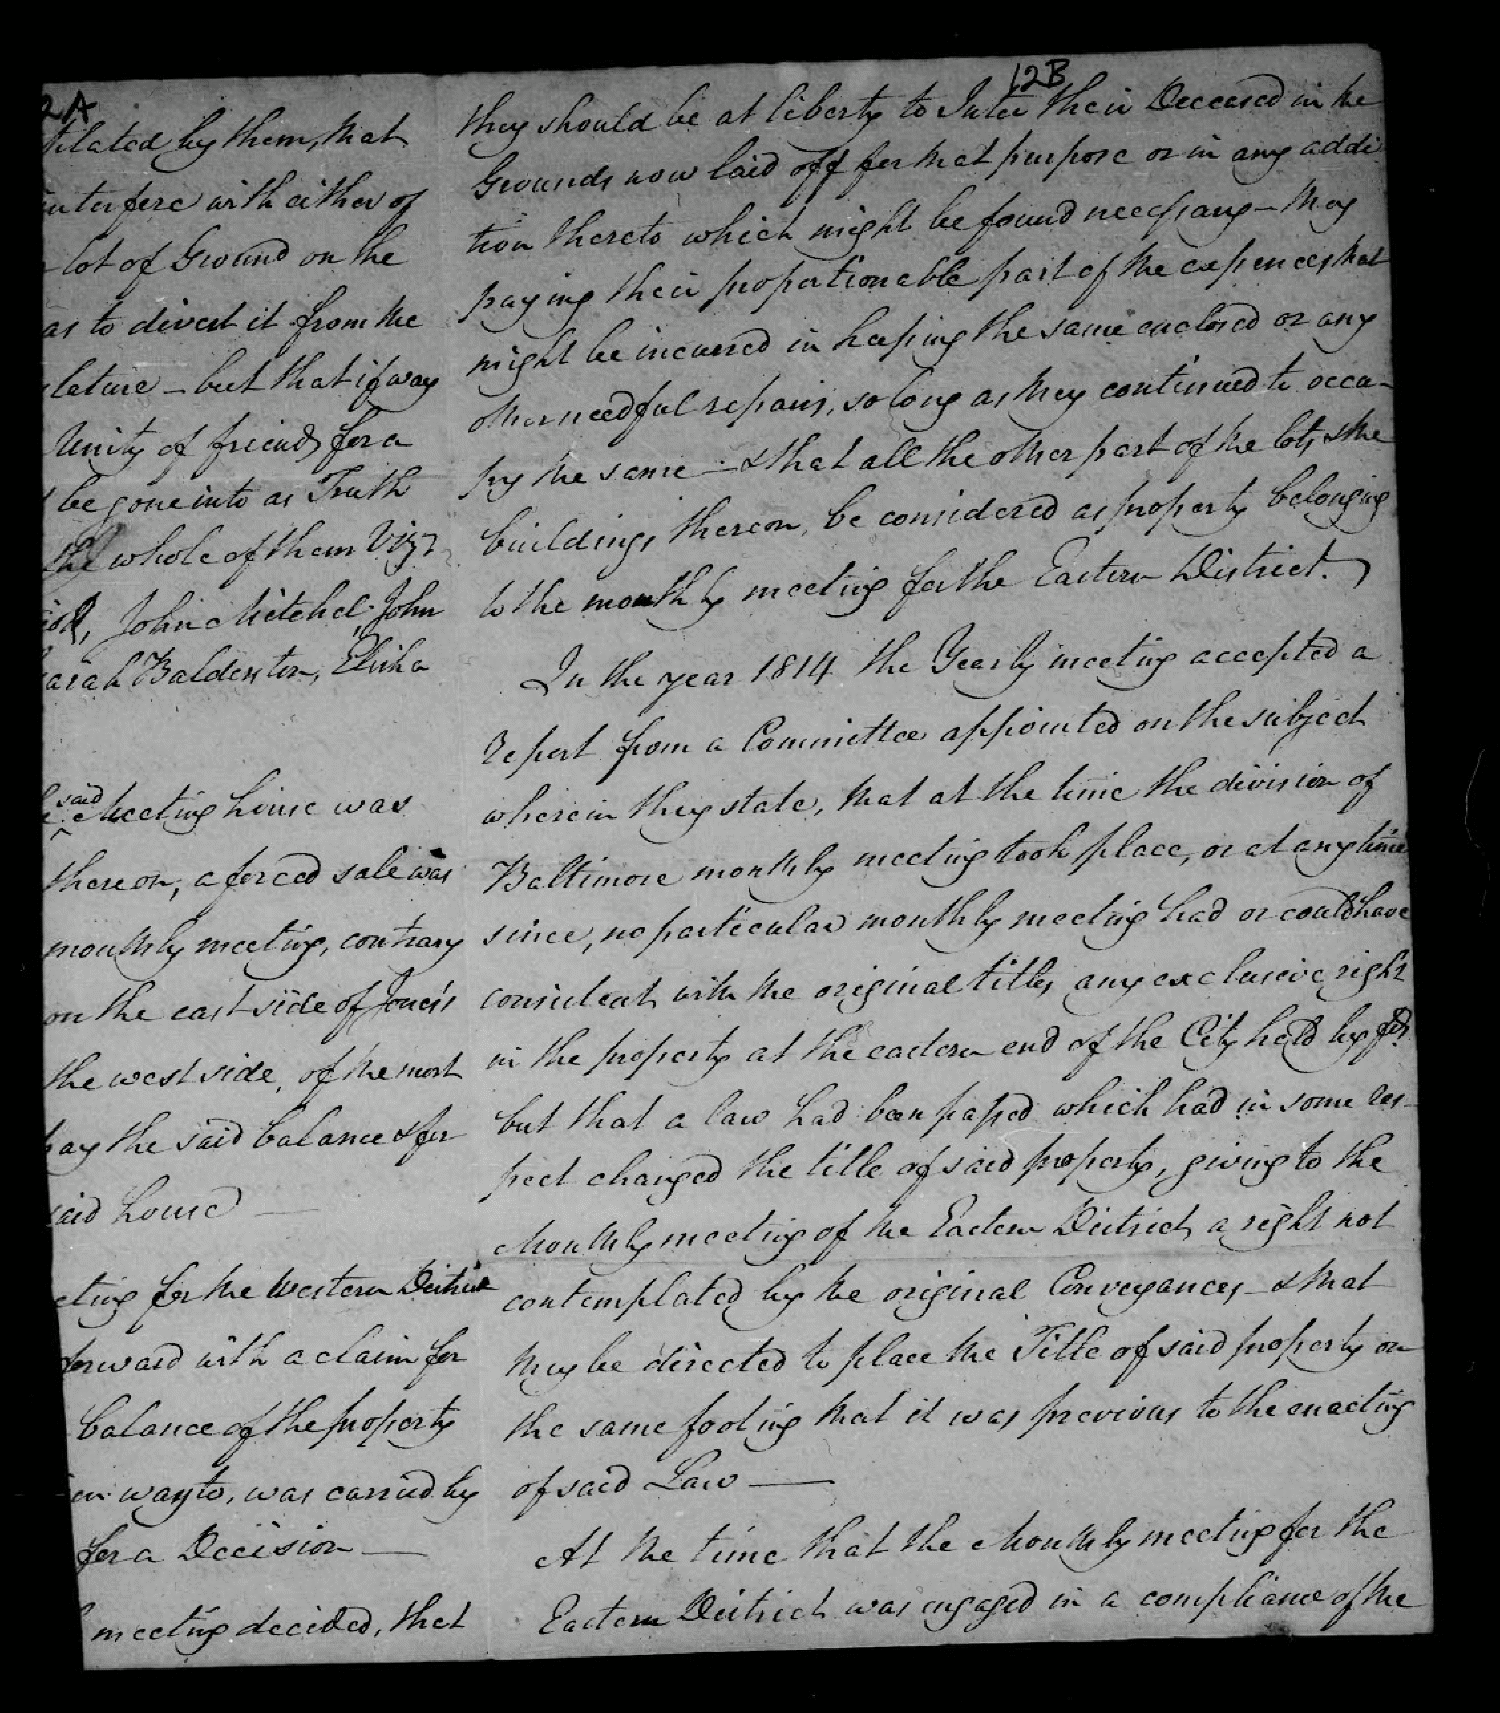 2A
tilated by them, that
interfere with either of
lot of Ground on the
as to divert it from the
lature – but that if way
Unity of friends for a
be gone into as Truth
the whole of them Vizt
John Mitchel, John
arah Balderston, Elisha
said
Meeting house was
thereon, a forced sale was
monthly meeting, contrary
on the east side of Jones's
the west side, of the most
pay the said balance & for
said house —
eting for the Western District
forward with a claim for
balance of the property
way to, was carried by
for a Decision —
meeting decided, that
12B
they should be at liberty to Inter their Deceased in the
Grounds now laid off for that purpose or in any addi
tion thereto which might be found necessary – they
paying their proportionable part of the expences that
might be incurred in keeping the same enclosed or any
other needful repairs, so long as they continued to occu-
py the same – & that all the other part of the lots & the
buildings thereon, be considered as property belonging
to the monthly meeting for the Eastern District.
In the year 1814 the Yearly meeting accepted a
report from a Committee appointed on the subject
wherein they state, that at the time the division of
Baltimore monthly meeting took place, or at any time
since, no particular monthly meeting had or could have
consistent with the original titles any exclusive right
in the property at the eastern end of the City held by fds
but that a law had been passed which had in some res-
pect changed the title of said property, giving to the
Monthly meeting of the Eastern District a right not
contemplated by the original Conveyances – & that
they be directed to place the Title of said property on
the same footing that it was previous to the enacting
of said Law —
At the time that the Monthly meeting for the
Eastern District was engaged in a compliance of the